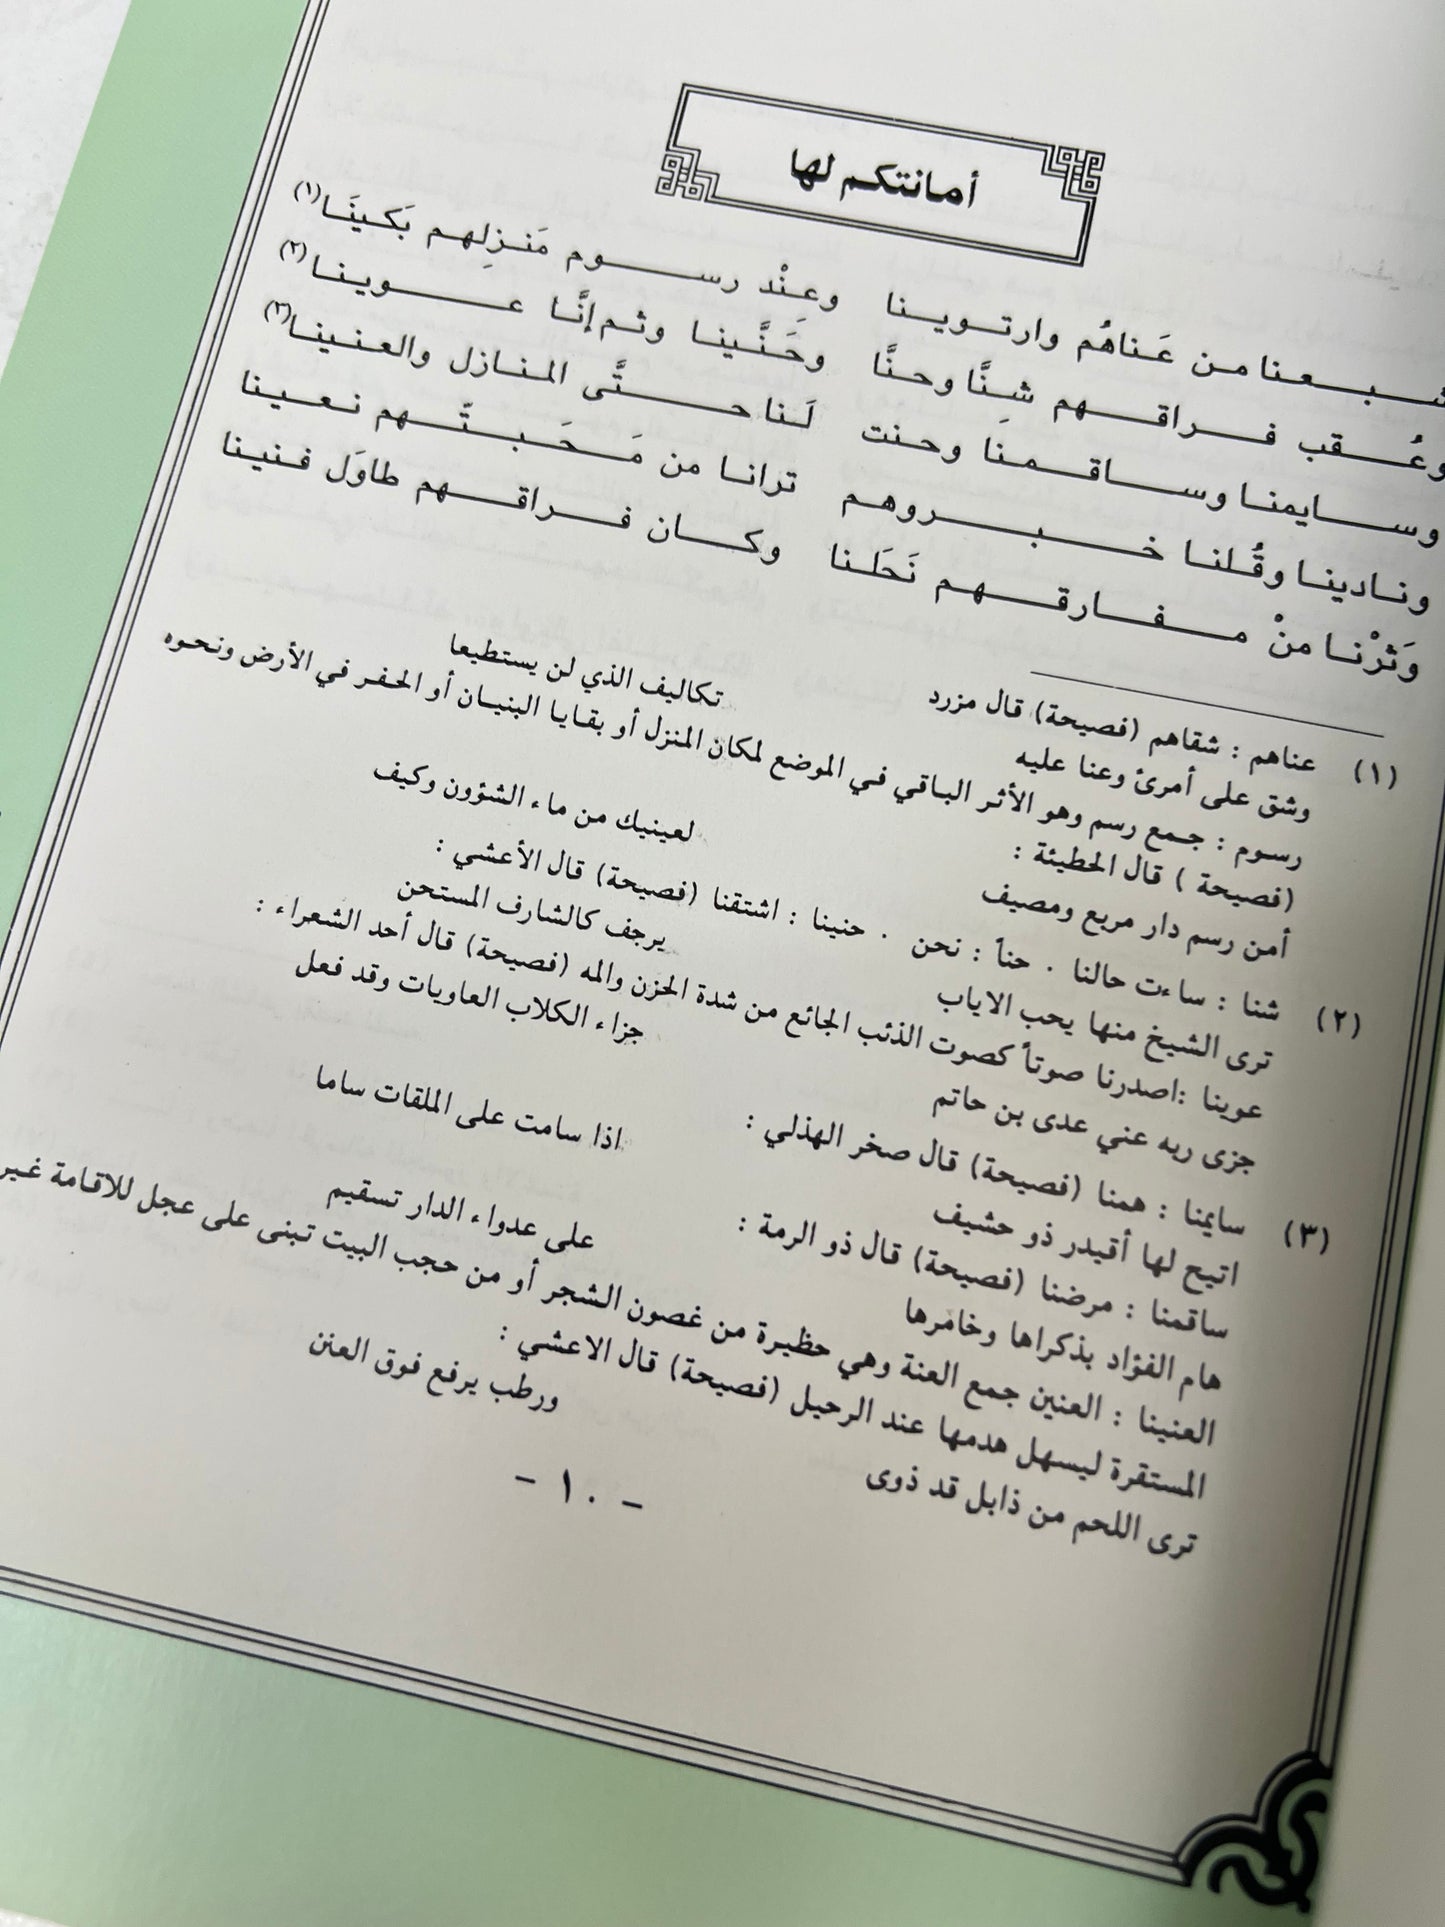 أمانتكم لها
شبعنا من عَناهُم وارتوينا وعِنْد رسوم مَنزِلهم بَكينَا(١)
وعُقب فراقهم شِنَّا وحنَّا وحَنَّينا وثم إنَّا عوينا(٢)
وسايمنا وساقمنَا وحنت لَنا حتَّى المنازل والعنينا(٣)
ونادينا وقُلنا خبروهم ترانا من مَحَبتّهم نعينا
وَثرْنا منْ مفارقهم نَحَلنا وكان فراقهم طاوَل فنينا
(١) عناهم : شقاهم (فصيحة) قال مزرد
وشق على أمرئ وعنا عليه تكاليف الذي لن يستطيعا
رسوم : جمع رسم وهو الأثر الباقي في الموضع لمكان المنزل أو بقايا البنيان أو الحفر في الأرض ونحوه
(فصيحة ) قال الحطيئة :
أمن رسم دار مربع ومصيف لعينيك من ماء الشؤون وكيف
(٢) شنا : ساءت حالنا . حنأ : نحن . حنينا : اشتقنا (فصيحة) قال الأعشي :
ترى الشيخ منها يحب الاياب يرجف كالشارف المستحن
عوينا :اصدرنا صوتأ كصوت الذئب الجائع من شدة الحزن والمه (فصيحة) قال أحد الشعراء :
جزى ربه عني عدى بن حاتم جزاء الكلاب العاويات وقد فعل
(٣) سايمنا : همنا (فصيحة) قال صخر الهذلي :
اتيح لها أقيدر ذو حشيف اذا سامت على الملقات ساما
ساقمنا : مرضنا (فصيحة) قال ذو الرمة :
هام الفؤاد بذكراها وخامرها على عدواء الدار تسقيم
العنينا : العنين جمع العنة وهي حظيرة من غصون الشجر أو من حجب البيت تبنى على عجل للاقامة غير
المستقرة ليسهل هدمها عند الرحيل (فصيحة) قال الاعشي :
ترى اللحم من ذابل قد ذوى ورطب يرفع فوق العنن
- ١٠ -